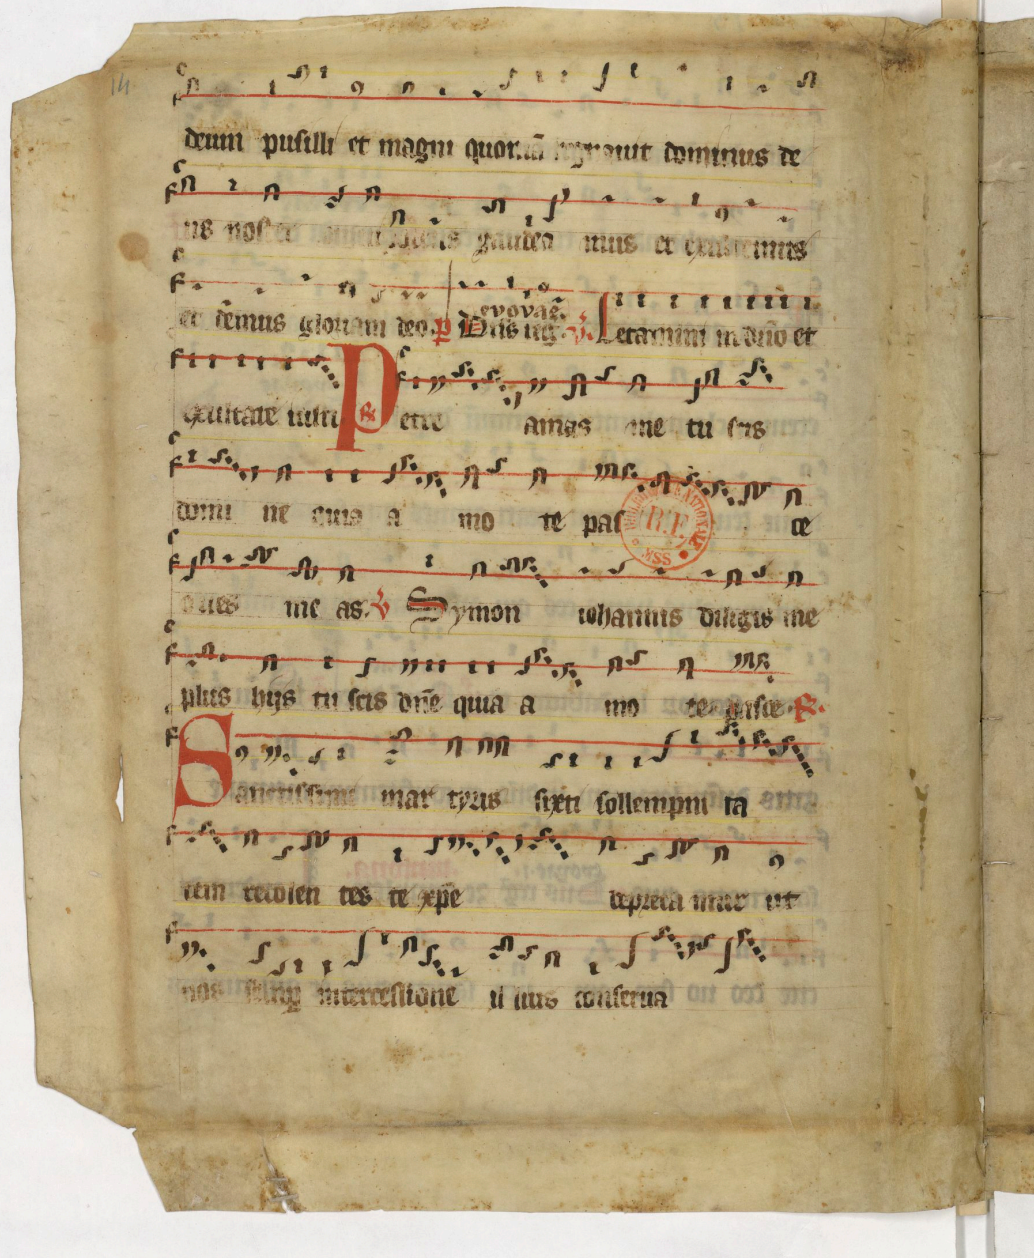 14
deum pusilli et magni quoniā regnauit dominus de
us noster gaudea mus et exultemus
et dēmus gloriam deo. p̄ Dn̄s reg. euouae. Letamini in dn̄o et
exultate iusti Petre amas me tu scis
domi ne quia a mo te pas ce
oues me as. Symon iohannis diligis me
plus hijs tu scis dn̄e quia a mo te. pasce. R.
Sanctissime mar tyris sixti sollempni ta
tem recolen tes te xp̄e depreca mur ut
nos semp intercessione il lius conserua
BIBLIOTHÈQUE NATIONALE
R.F.
MSS